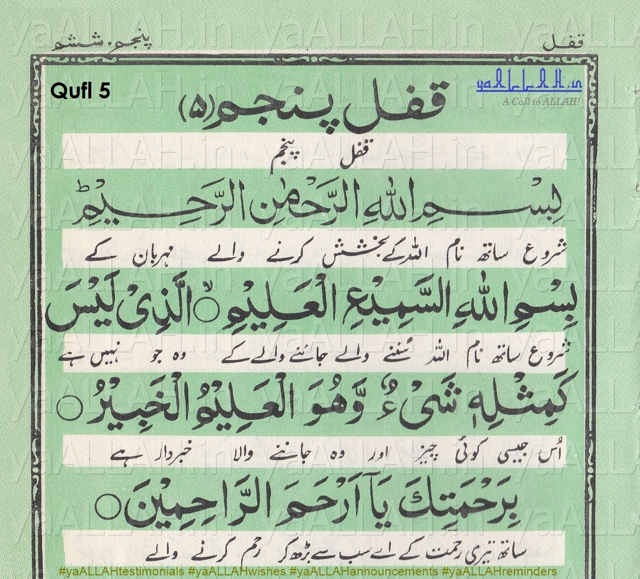 قفل
پنجم، ششم
Qufl 5
yaALLAH.in
A Call to ALLAH!
قفل پنجم (۵)
قفل پنجم
بِسْمِ اللهِ الرَّحْمٰنِ الرَّحِيْمِ ط
شروع ساتھ نام اللہ کے بخشش کرنے والے مہربان کے
بِسْمِ اللهِ السَّمِيْعِ الْعَلِيْمِ ○ الَّذِىْ لَيْسَ
شروع ساتھ نام اللہ سُننے والے جاننے والے کے وہ جو نہیں ہے
كَمِثْلِهٖ شَىْءٌ وَّهُوَ الْعَلِيْمُ الْخَبِيْرُ ○
اُس جیسی کوئی چیز اور وہ جاننے والا خبردار ہے
بِرَحْمَتِكَ يَآ اَرْحَمَ الرَّاحِمِيْنَ ○
ساتھ تیری رحمت کے اے سب سے بڑھ کر رحم کرنے والے
#yaALLAHtestimonials #yaALLAHwishes #yaALLAHannouncements #yaALLAHreminders